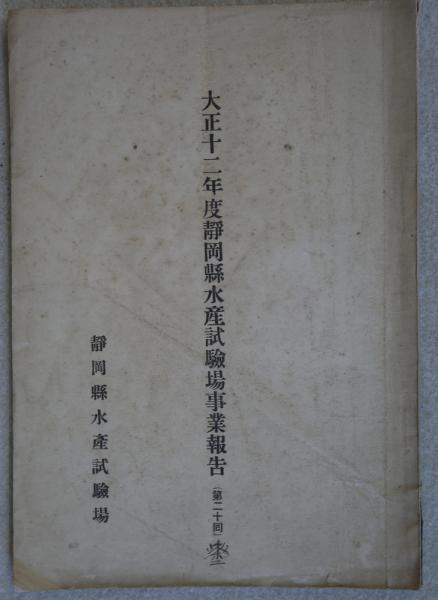 大正十二年度靜岡縣水產試驗場事業報告（第二十回）
靜岡縣水產試驗場